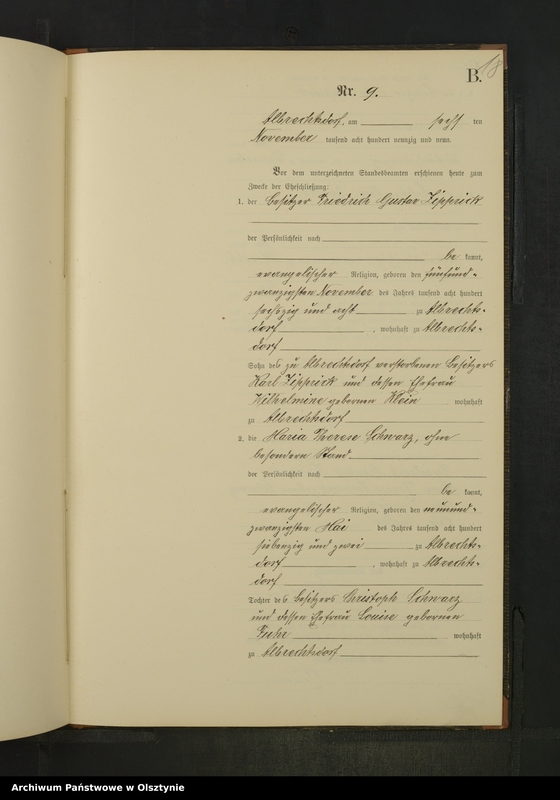 B.
18
Nr. 9.
Albrechtsdorf, am sechs ten
November tausend acht hundert neunzig und neun.
Vor dem unterzeichneten Standesbeamten erschienen heute zum
Zwecke der Eheschließung:
1. der Besitzer Friedrich Gustav Zipprick
der Persönlichkeit nach
be kannt,
evangelischer Religion, geboren den fünfund-
zwanzigsten November des Jahres tausend acht hundert
sechszig und acht zu Albrechts-
dorf, wohnhaft zu Albrechts-
dorf
Sohn des zu Albrechtsdorf verstorbenen Besitzers
Karl Zipprick und dessen Ehefrau
Wilhelmine geborenen Klein wohnhaft
zu Albrechtsdorf
2. die Maria Therese Schwarz, ohne
besondern Stand
der Persönlichkeit nach
be kannt,
evangelischer Religion, geboren den neunund-
zwanzigsten Mai des Jahres tausend acht hundert
siebenzig und zwei zu Albrechts-
dorf, wohnhaft zu Albrechts-
dorf
Tochter des Besitzers Christoph Schwarz
und dessen Ehefrau Louise geborenen
wohnhaft
zu Albrechtsdorf
Archiwum Państwowe w Olsztynie